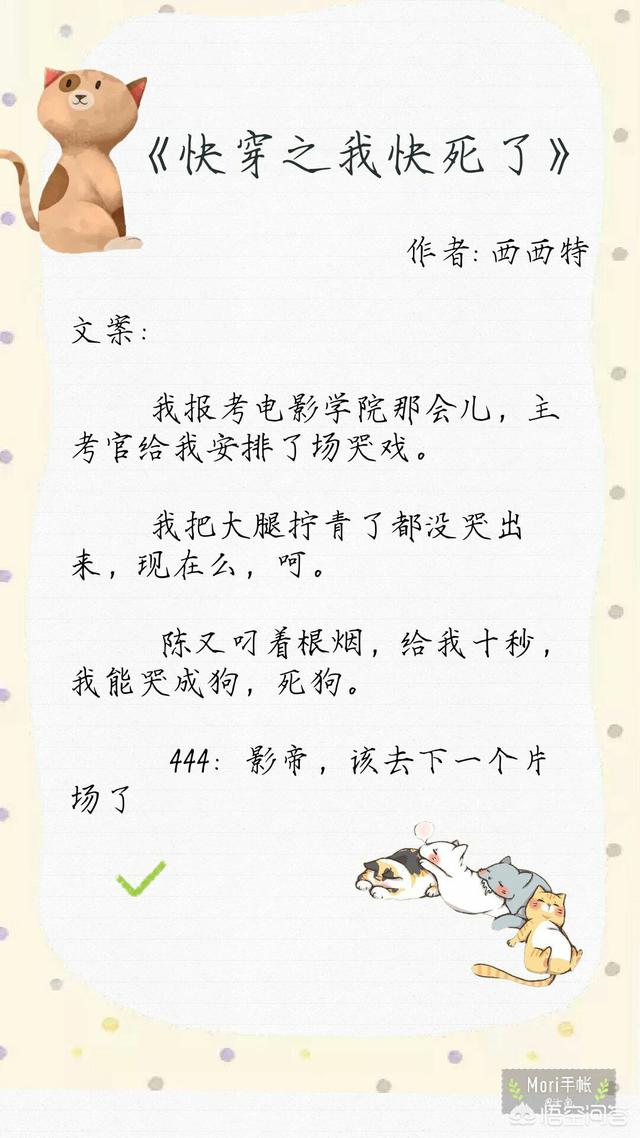 《快穿之我快死了》
作者: 西西特
文案:
我报考电影学院那会儿，主
考官给我安排了场哭戏。
我把大腿拧青了都没哭出
来，现在么，呵。
陈又叼着根烟，给我十秒，
我能哭成狗，死狗。
444: 影帝，该去下一个片
场了
Mori手帐
悟空问答